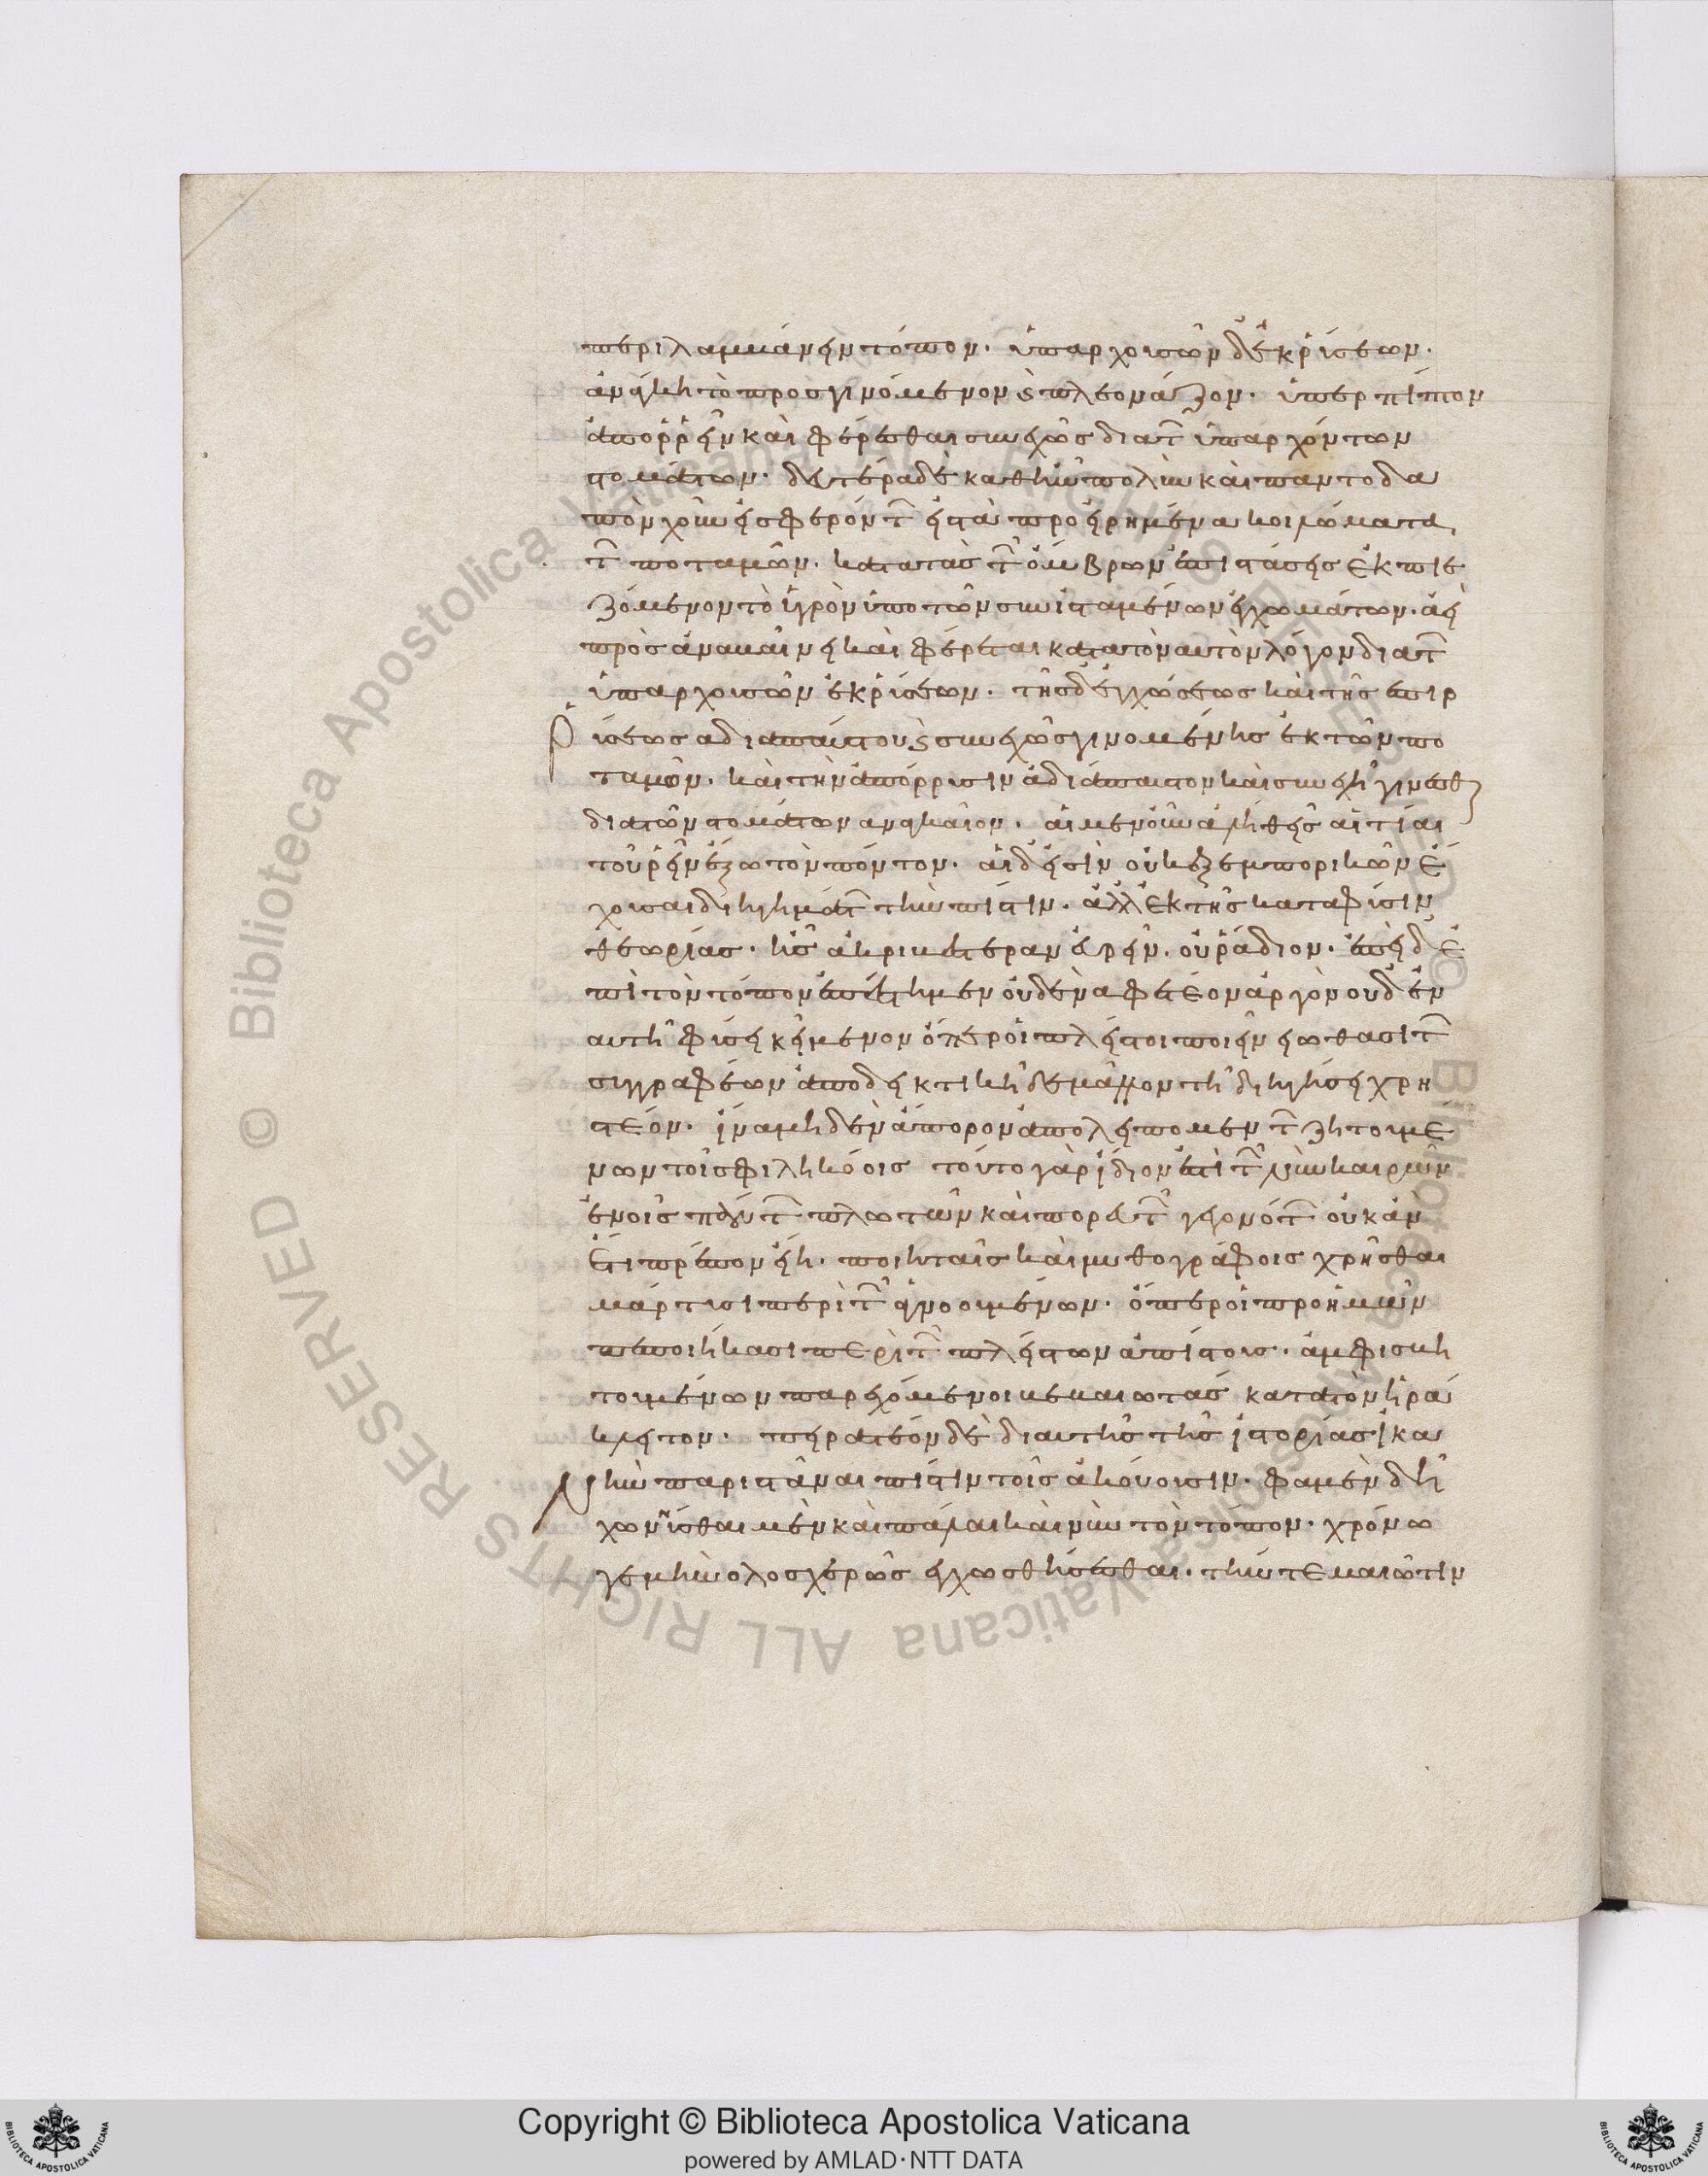 περιλαμβάνειν τόπον. ὑπαρχουσῶν δ' ἐκρύσεων.
ἀνάγκη τὸ προσγινόμενον ϗ πλεονάζον. ὑπερπῖπτον
ἀπορρεῖν καὶ φέρεσθαι συνεχῶς διὰ τῶν ὑπαρχόντων
στομάτων. δευτέρα δὲ καθ' ἣν πολὺν καὶ παντοδα
πὸν χοῦν εἰσφερόντων εἰς τὰ προειρημένα κοιλώματα
τῶν ποταμῶν. κατὰ τὰς τῶν ὄμβρων ἐπιτάσεις ἐκπιε
ζόμενον τὸ ὑγρὸν ὑπὸ τῶν συνισταμένων ἐγχωμάτων. ἀεὶ
προσαναβαίνει καὶ φέρεται κατὰ τὸν αὐτὸν λόγον διὰ τῶν
ὑπαρχουσῶν ἐκρύσεων. τῆς δ' ἐγχώσεως καὶ τῆς ἐπιρ
ρύσεως ἀδιαπαύστου ϗ συνεχῶς γινομένης ἐκ τῶν πο
ταμῶν. καὶ τὴν ἀπόρρυσιν ἀδιάπαυστον καὶ συνεχῆ γίνεσθαι
διὰ τῶν στομάτων ἀναγκαῖον. αἱ μὲν οὖν ἀληθεῖς αἰτίαι
τοῦ ῥεῖν ἔξω τὸν πόντον. αἵδ' εἰσὶν οὐκ ἐξ ἐμπορικῶν ἔ
χουσαι διηγημάτων τὴν πίστιν. ἀλλ' ἐκ τῆς κατὰ φύσιν
θεωρίας. ἧς ἀκριβεστέραν εὑρεῖν. οὐ ῥάδιον. ἐπεὶ δ' ἐ
πὶ τὸν τόπον ἐπέστημεν οὐδὲν ἀφετέον ἀργὸν οὐδ' ἐν
αὐτῇ φύσει κείμενον ὅπερ οἱ πλεῖστοι ποιεῖν εἰώθασι τῶν
συγγραφέων ἀποδεικτικῇ δὲ μᾶλλον τῇ διηγήσει χρη
στέον. ἵνα μηδὲν ἄπορον ἀπολείπωμεν τῶν ζητουμέ
νων τοῖς φιληκόοις τοῦτο γὰρ ἴδιόν ἐστι τῶν νῦν καιρῶν
ἐν οἷς πάντων πλωτῶν καὶ πορευτῶν γεγονότων οὐκ ἂν
ἔτι πρέπον εἴη. ποιηταῖς καὶ μυθογράφοις χρῆσθαι
μάρτυσι περὶ τῶν ἀγνοουμένων. ὅπερ οἱ πρὸ ἡμῶν
πεποιήκασι περὶ τῶν πλείστων ἀπίστους. ἀμφισβη
τουμένων παρεχόμενοι βεβαιωτὰς κατὰ τὸν ἡρά
κλειτον. πειρατέον δὲ δι' αὐτῆς τῆς ἱστορίας ἱκα
νὴν παριστάναι πίστιν τοῖς ἀκούουσιν. φαμὲν δὴ
χώννυσθαι μὲν καὶ πάλαι καὶ νῦν τὸν τόπον. χρόνω
γε μὴν ὁλοσχερῶς ἐγχωσθήσεσθαι. τήν τε μαιῶτιν
Copyright © Biblioteca Apostolica Vaticana
powered by AMLAD·NTT DATA